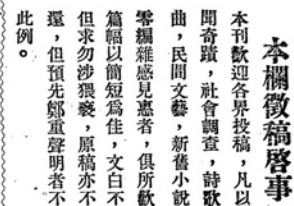 本欄徵稿啓事
本刊歡迎各界投稿，凡以
聞奇蹟，社會調查，詩歌
曲，民間文藝，新舊小說
零編雜感見惠者，俱所歡
篇幅以簡短爲佳，文白不
但求勿涉猥褻，原稿亦不
還，但預先鄭重聲明者不
此例。